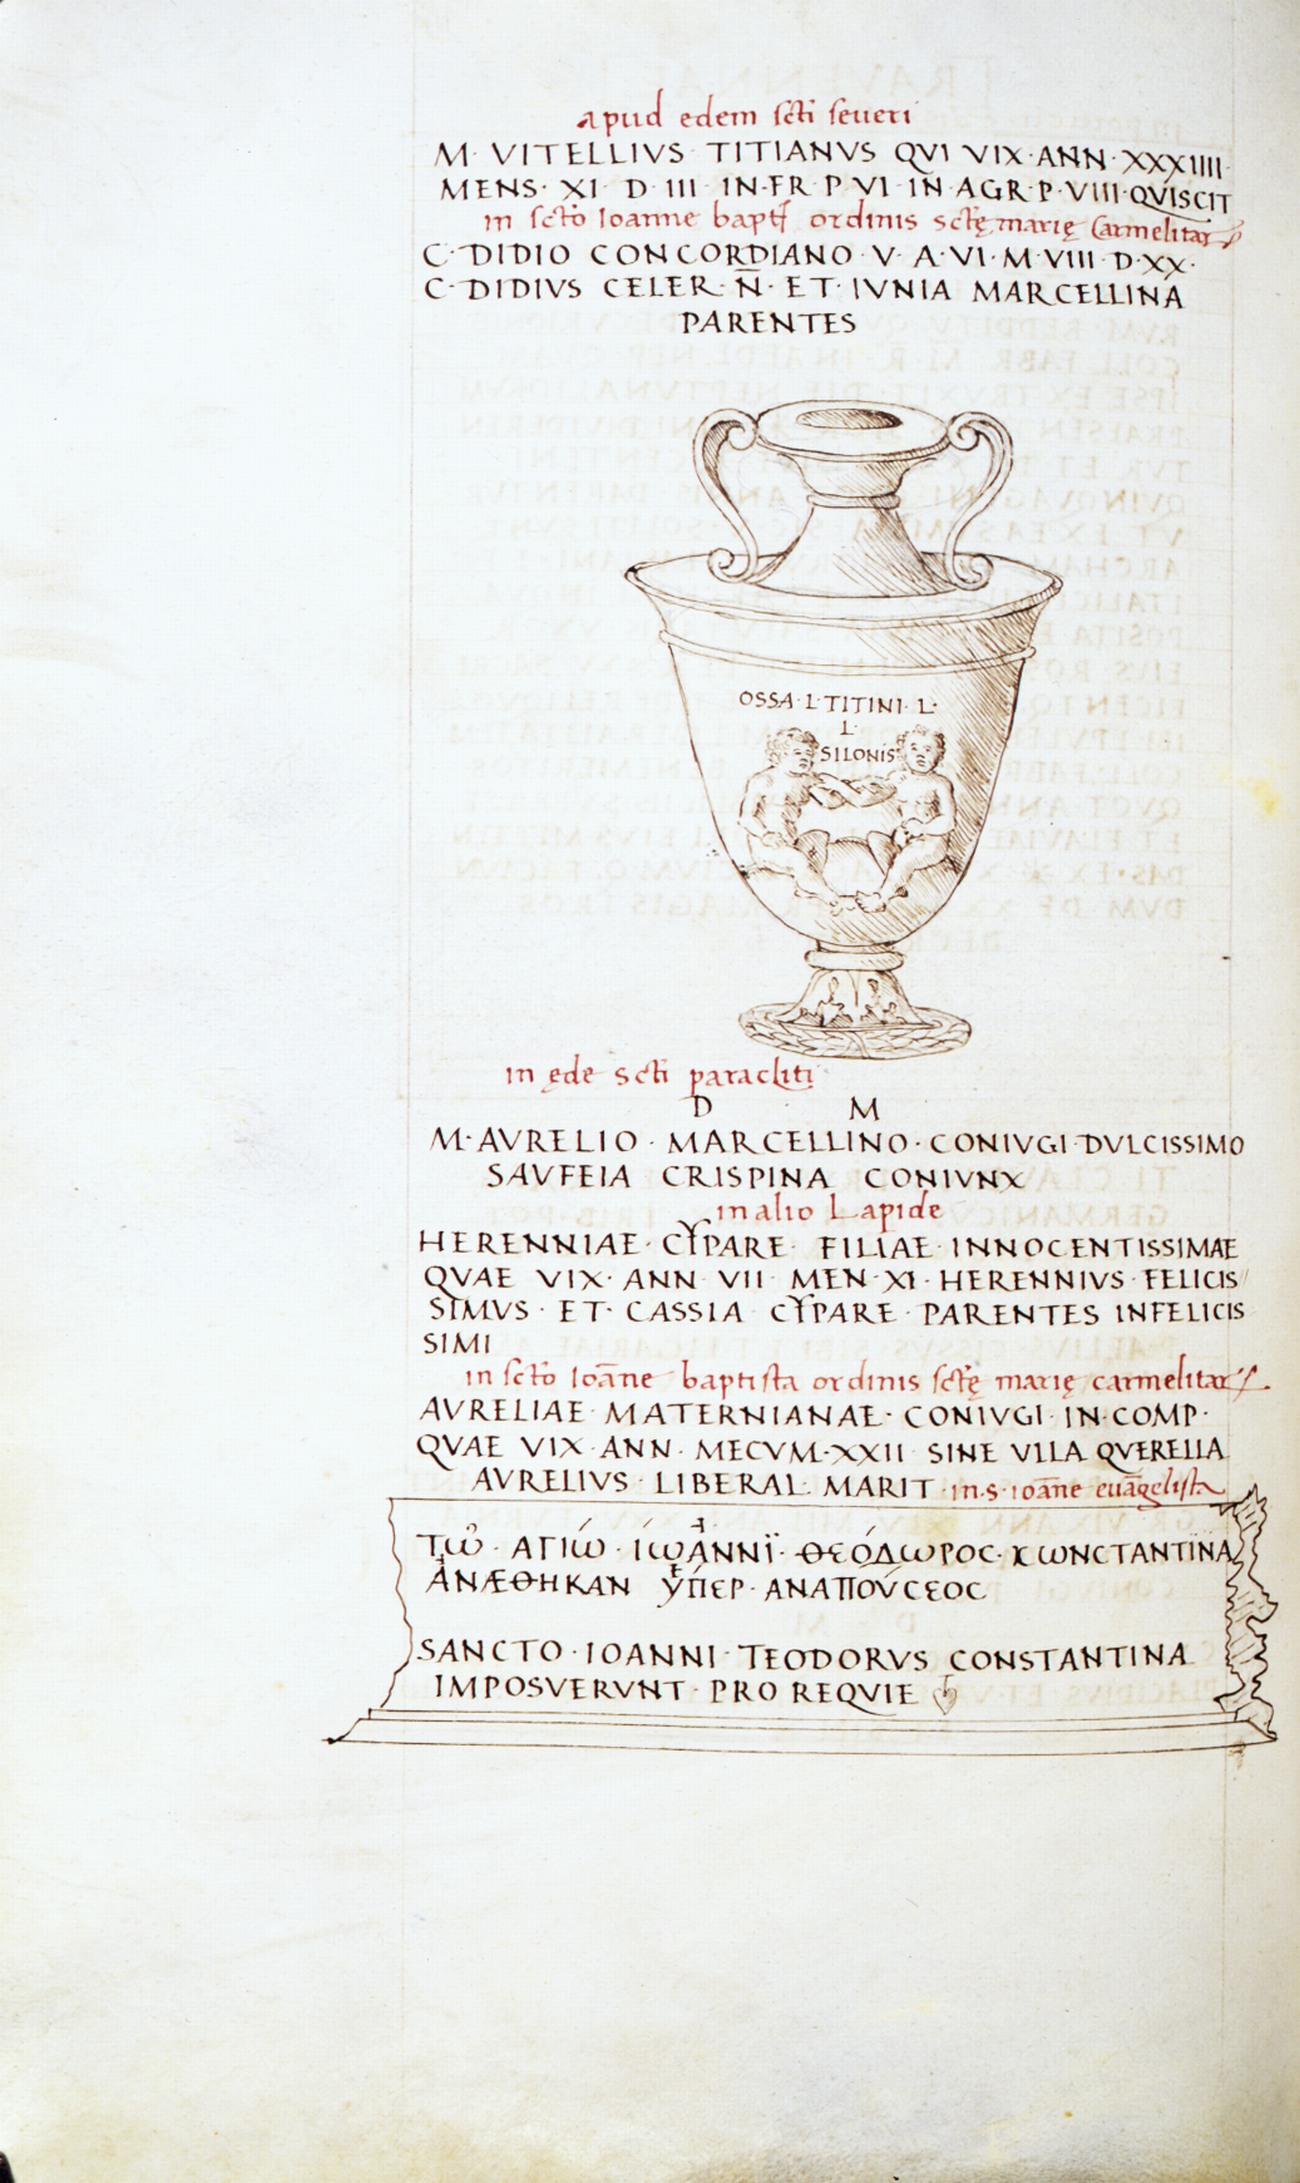 apud edem scti seueri
M· VITELLIVS· TITIANVS QVI VIX·ANN·XXXIIII·
MENS· XI D· III· IN·FR·P·VI·IN·AGR·P·VIII·QVISCIT
in scto Ioanne bapt ordinis sctę marię Carmelitar
C·DIDIO CONCORDIANO·V·A·VI·M·VIII·D·XX·
C·DIDIVS CELER·N̄·ET·IVNIA MARCELLINA
PARENTES
OSSA·L·TITINI·L·
L·
SILONIS
in ęde scti paracliti
D M
M·AVRELIO·MARCELLINO·CONIVGI·DVLCISSIMO
SAVFEIA CRISPINA CONIVNX
in alio Lapide
HERENNIAE·CYPARE·FILIAE·INNOCENTISSIMAE
QVAE VIX·ANN·VII MEN·XI·HERENNIVS·FELICIS
SIMVS·ET·CASSIA CYPARE·PARENTES INFELICIS
SIMI
in scto Ioāne baptista ordinis sctę marię carmelitar
AVRELIAE·MATERNIANAE·CONIVGI·IN·COMP·
QVAE VIX·ANN·MECVM·XXII SINE VLLA QVERELLA
AVRELIVS·LIBERAL·MARIT·in·s·ioāne euāgelista
Τῶ·ΑΓΙώ·ΙωΆΝΝΪ·ΘΕόΔωΡΟC·ΚωΝCΤΑΝΤΪΝΑ
ἈΝÆΘΗΚΑΝ ὙΠΕΡ·ΑΝΑΠΟΎCΕΟC
SANCTO·IOANNI·TEODORVS CONSTANTINA
IMPOSVERVNT·PRO REQVIE